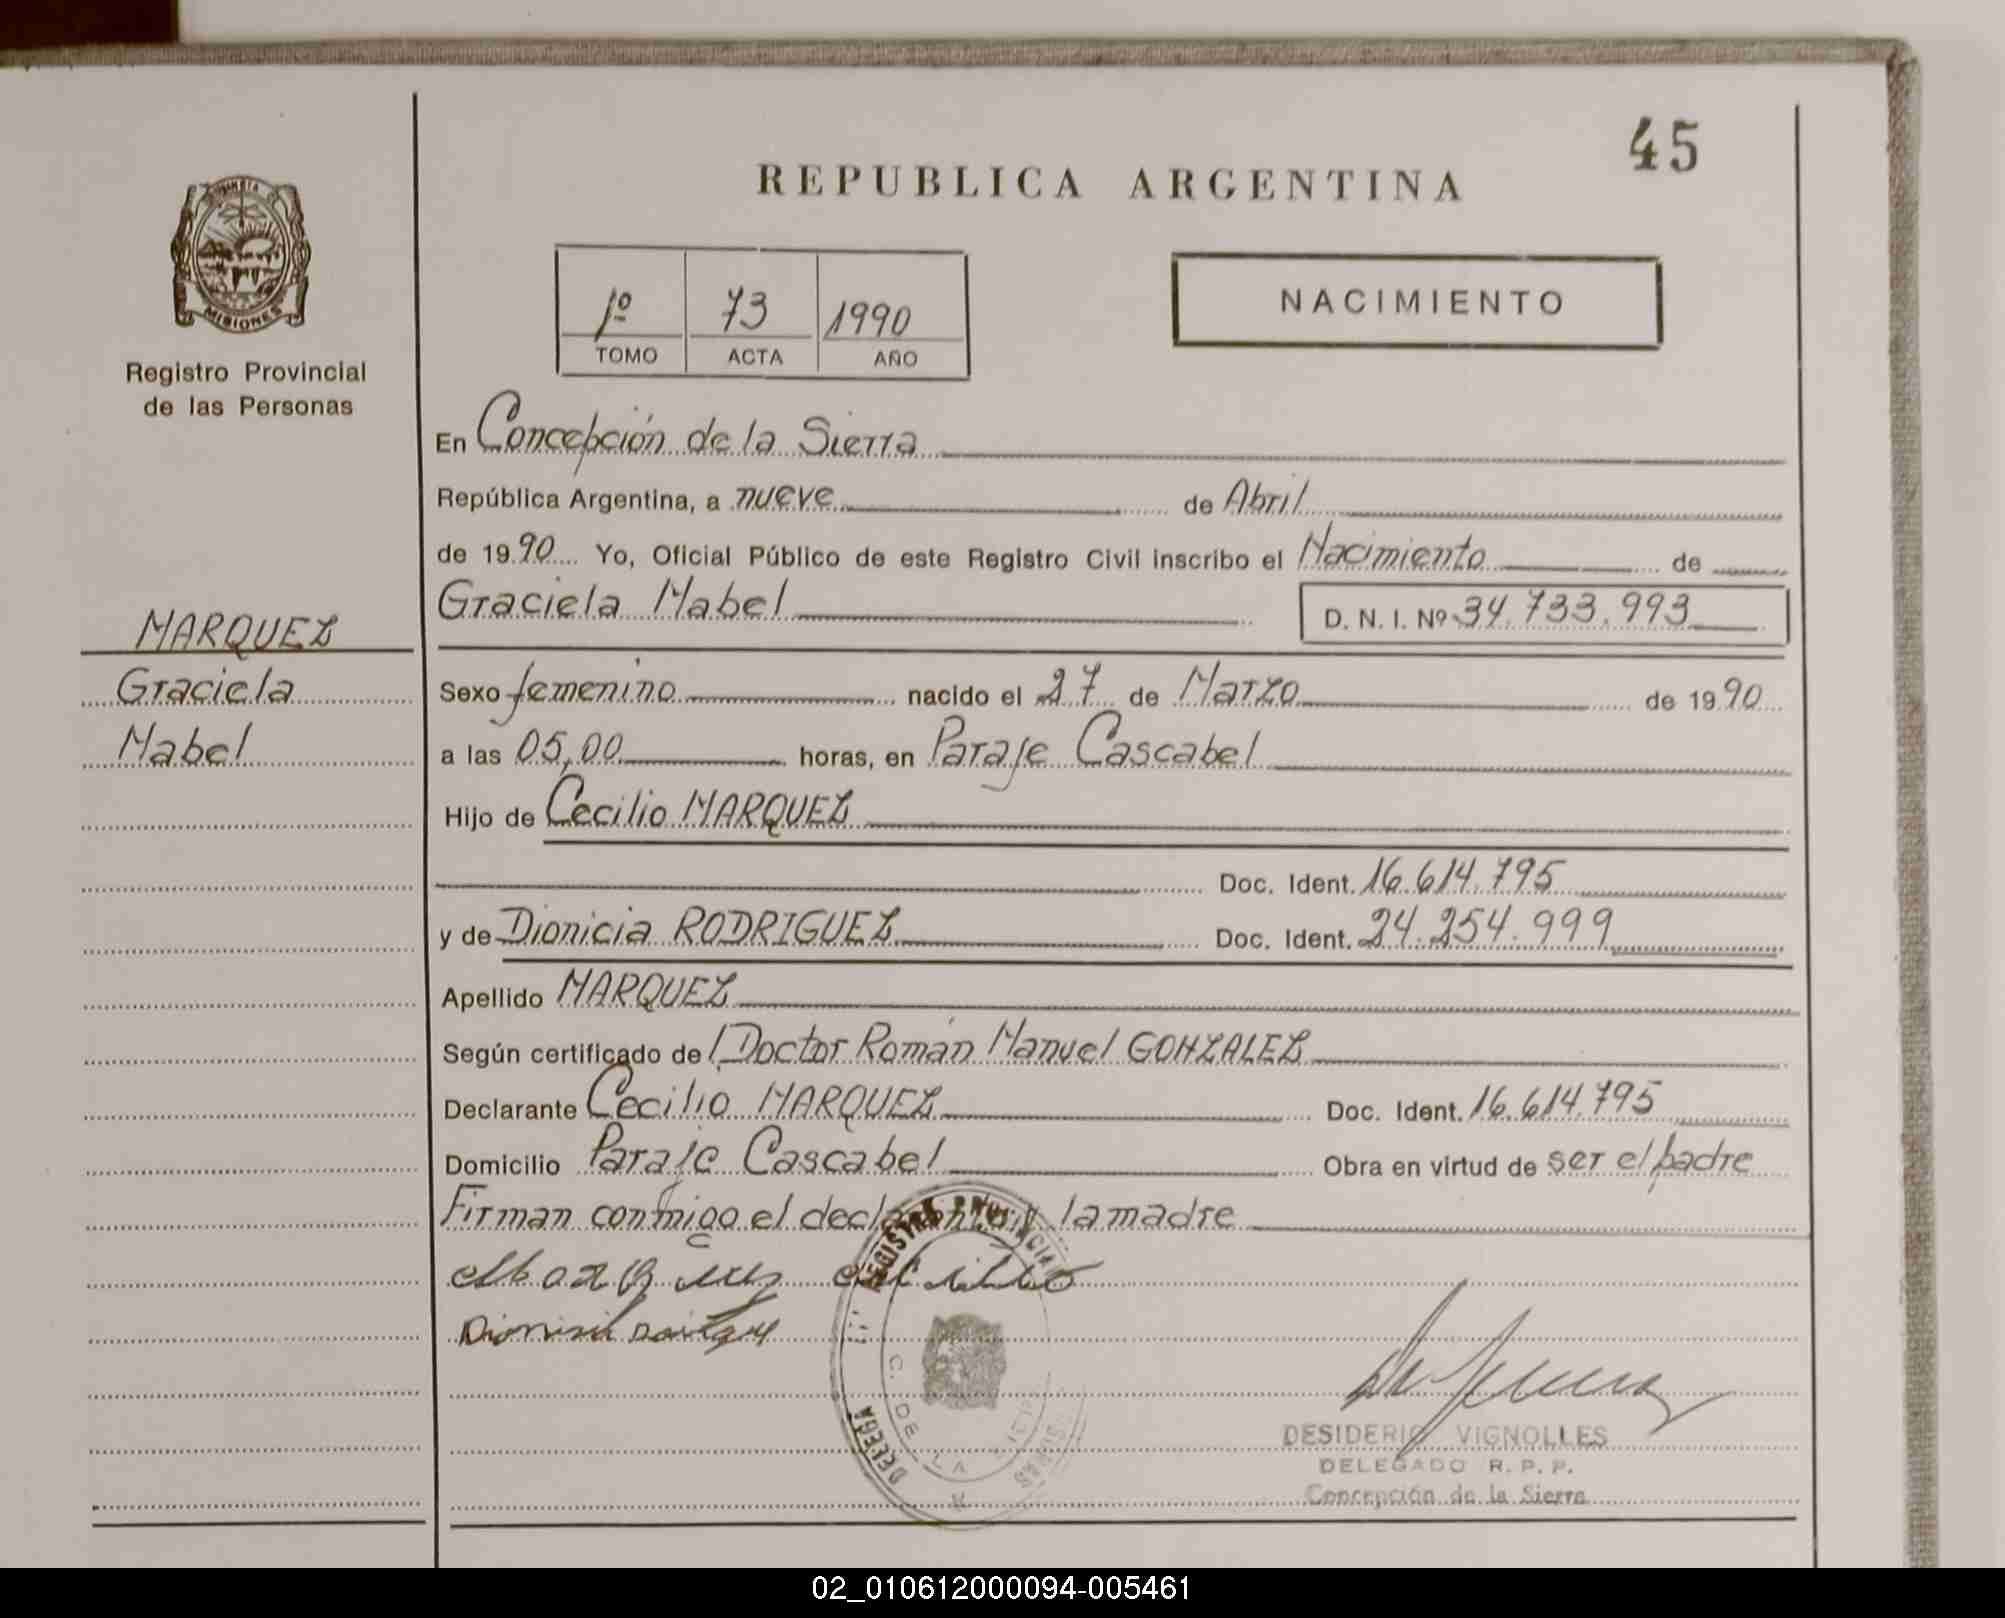 45
REPUBLICA ARGENTINA
MISIONES
Registro Provincial
de las Personas
1º 73 1990
TOMO ACTA AÑO
NACIMIENTO
En Concepción de la Sierra
República Argentina, a nueve de Abril
de 1990 Yo, Oficial Público de este Registro Civil inscribo el Nacimiento de
Graciela Mabel D. N. I. Nº 34.733.993
MARQUEZ
Graciela
Mabel
Sexo femenino nacido el 27 de Marzo de 1990
a las 05,00 horas, en Paraje Cascabel
Hijo de Cecilio MARQUEZ
Doc. Ident. 16.614.795
y de Dionicia RODRIGUEZ Doc. Ident. 24.254.999
Apellido MARQUEZ
Según certificado de Doctor Román Manuel GONZALEZ
Declarante Cecilio MARQUEZ Doc. Ident. 16.614.795
Domicilio Paraje Cascabel Obra en virtud de ser el padre
Firman conmigo el declarante y la madre
REGISTRO PROVINCIAL
DELEGA
C. DE LA
DESIDERIO VIGNOLLES
DELEGADO R. P. P.
Concepción de la Sierra
02_010612000094-005461